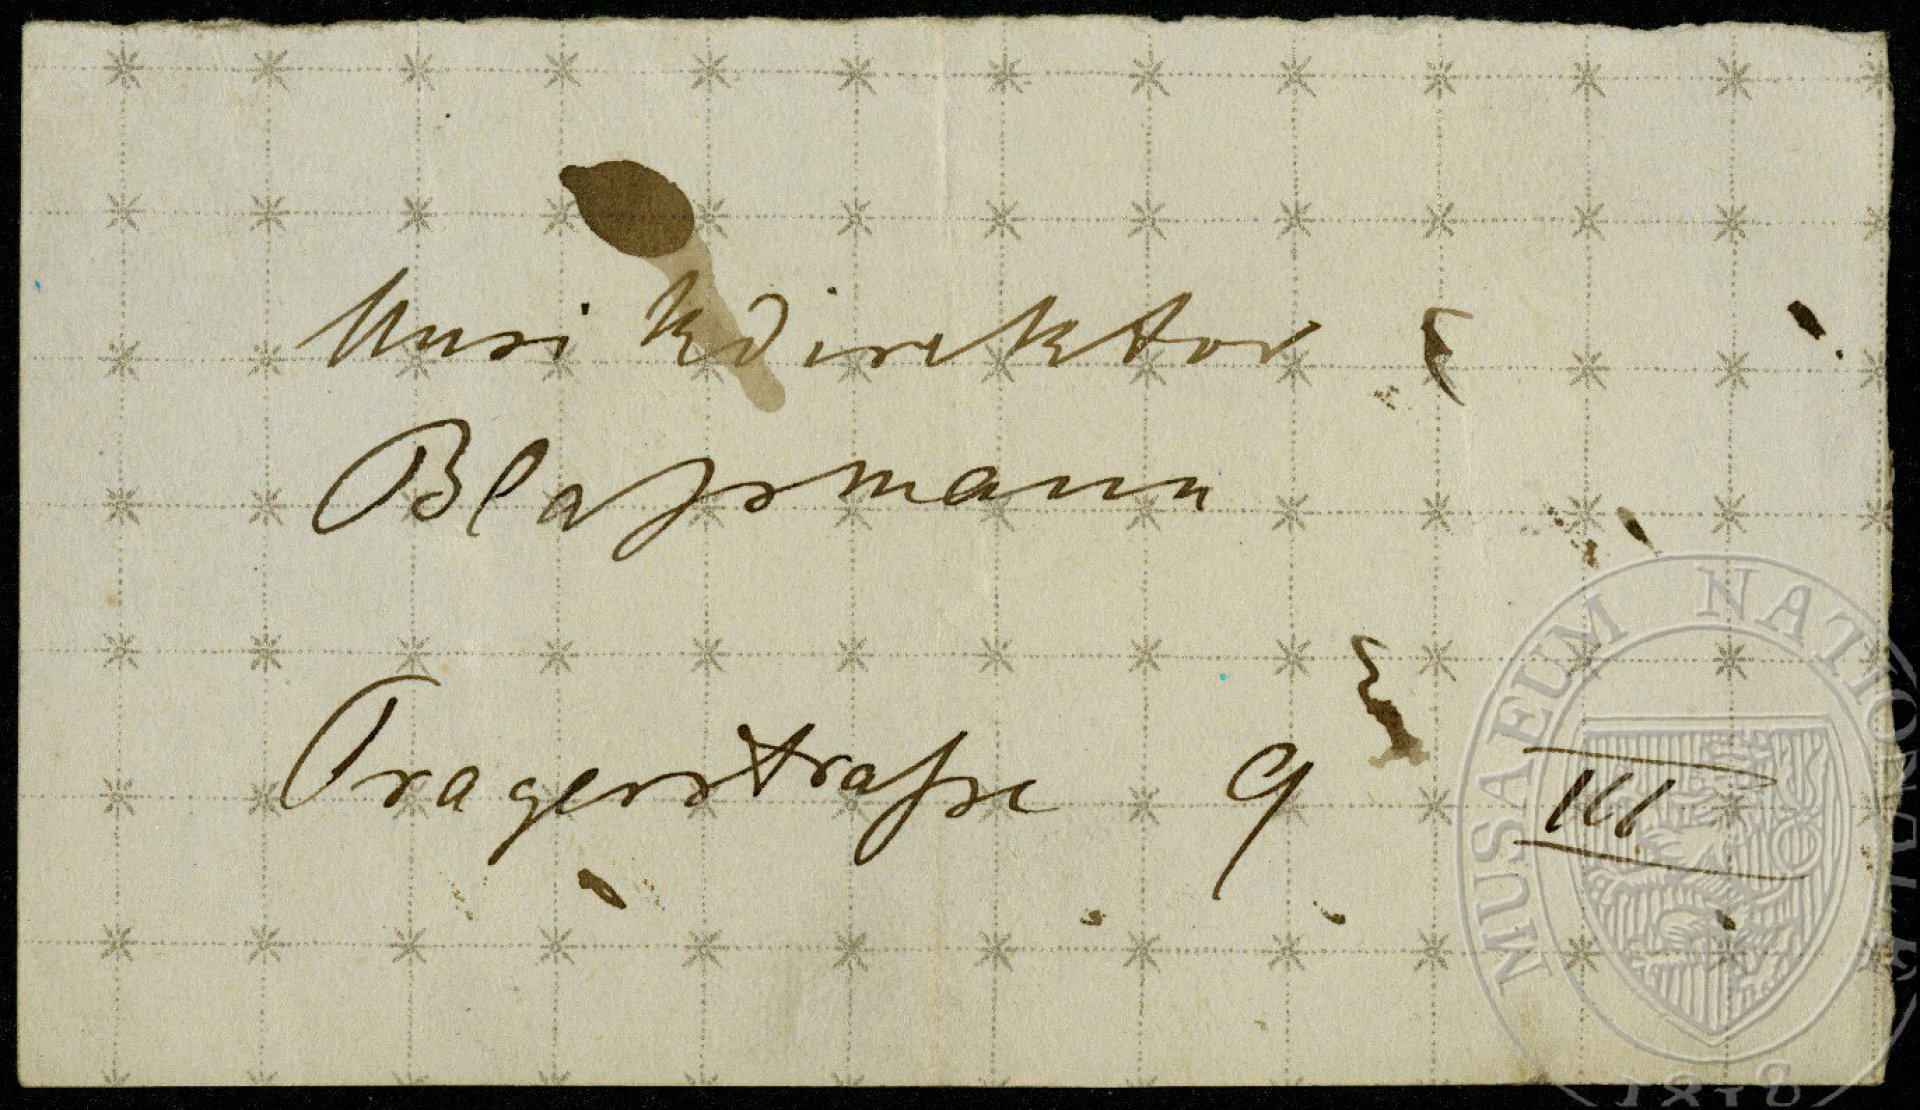 Musikdirektor
Blaßmann
Pragerstraße 9 III
MUSAEUM NATIONALE
1818